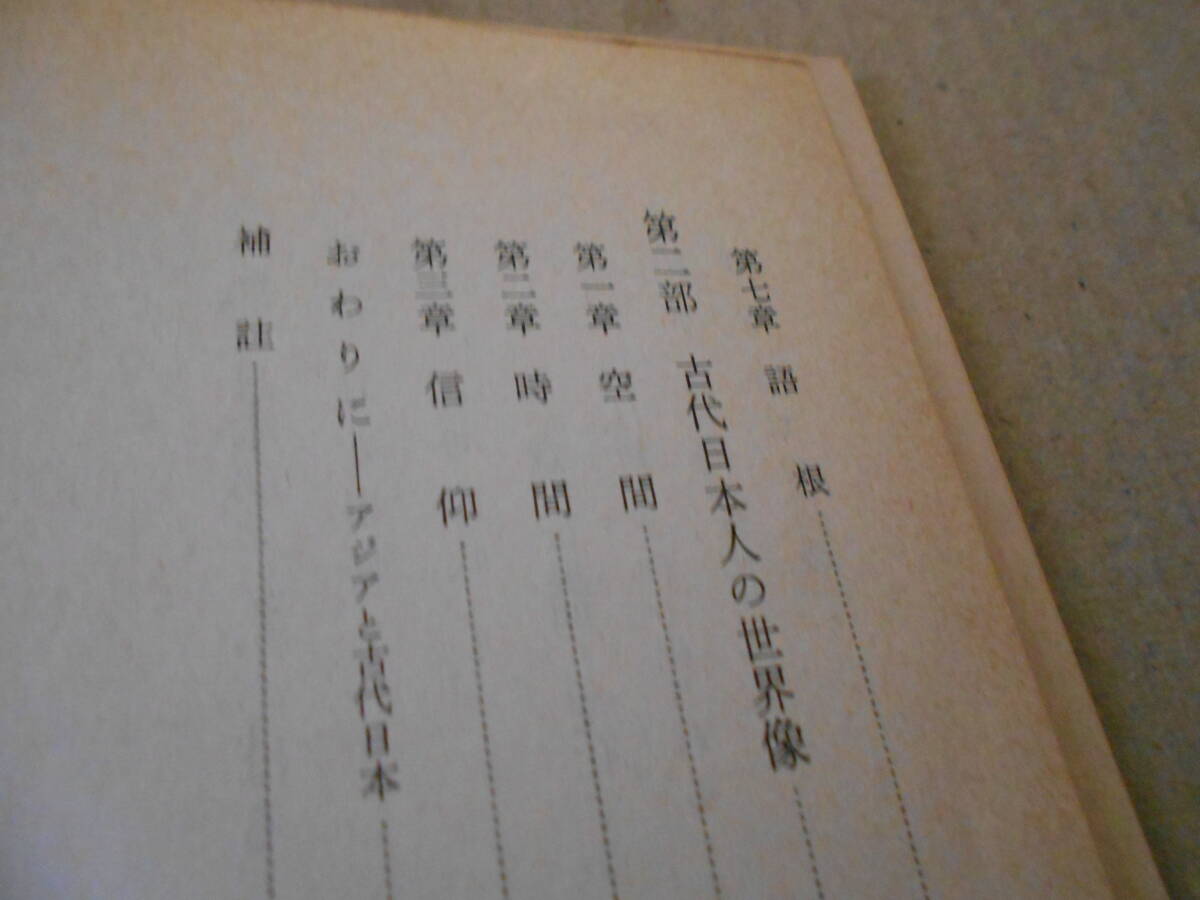 第七章 語根
第二部 古代日本人の世界像
第一章 空間
第二章 時間
第三章 信仰
おわりに―アジアと古代日本
補註